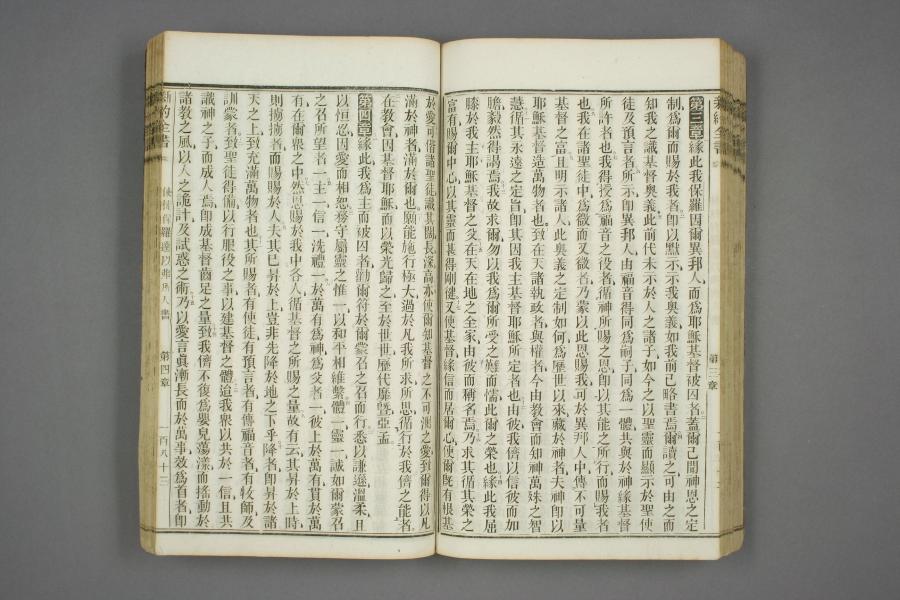 新約全書
第三章
第三章緣此我保羅因爾異邦人而爲耶穌基督被囚者蓋爾已聞神恩之定
制爲爾而賜於我者卽以默示示我奧義如我前已略書焉爾讀之可由之而
知我之識基督奧義此前代未示於人之諸子如今之以聖靈而顯示於聖使
徒及預言者所示卽異邦人由福音得同爲嗣子同爲一體共與於神緣基督
所許者也我得授爲福音之役者循神所賜之恩卽以其能之所行而賜我者
也我在諸聖徒中爲微而又微者乃蒙以此恩賜我可於異邦人中傳不可量
基督之富且明示諸人此奧義之定制如何爲歷世以來藏於神者夫神卽以
耶穌基督造萬物者也致在天諸執政者與權者今由教會而知神萬殊之智
慧循其永遠之定旨卽其因我主基督耶穌所定者也由彼我儕以信彼而如
膽毅然得謁焉我故求爾勿以我爲爾所受之難而懦此爾之榮也緣此我屈
膝於我主耶穌基督之父在天在地之全家由彼而稱名焉乃求其循其榮之
富有賜爾中心以其靈而甚得剛健又使基督緣信而居爾心使爾旣有根基
於愛可偕諸聖徒識其闊長深高亦使爾知基督之不可測之愛到爾得以凡
滿於神者滿於爾也願能施行極大過於凡我所求所思循行於我儕之能者
在教會因基督耶穌而以榮光歸之至於世世歷代靡曁亞孟
第四章緣此我爲主而被囚者勸爾符於爾蒙召之召而行悉以謙遜溫柔且
以恒忍因愛而相恕務守屬靈之惟一以和平相維繫體一靈一誠如爾蒙召
之召所望者一主一信一洗禮一於萬有爲神爲父者一彼上於萬有貫於萬
有在爾衆之中然恩賜於我中各人循基督之所賜之量故有云其昇於上時
則擄擄者而賜賜於人夫其已昇於上豈非先降於地之下乎降者卽昇於諸
天之上致充滿萬物者也其所賜者有使徒有預言者有傳福音者有牧師及
訓蒙者致聖徒得備以行服役之事以建基督之體迨我衆以共於一信且共
識神之子而成人焉卽成基督齒足之量到我儕不復爲嬰兒蕩漾而搖動於
諸教之風以人之詭計及試惑之術乃以愛言眞漸長而於萬事效爲首者卽
新約全書
使徒保羅達以弗所人書
第四章
一百八十三